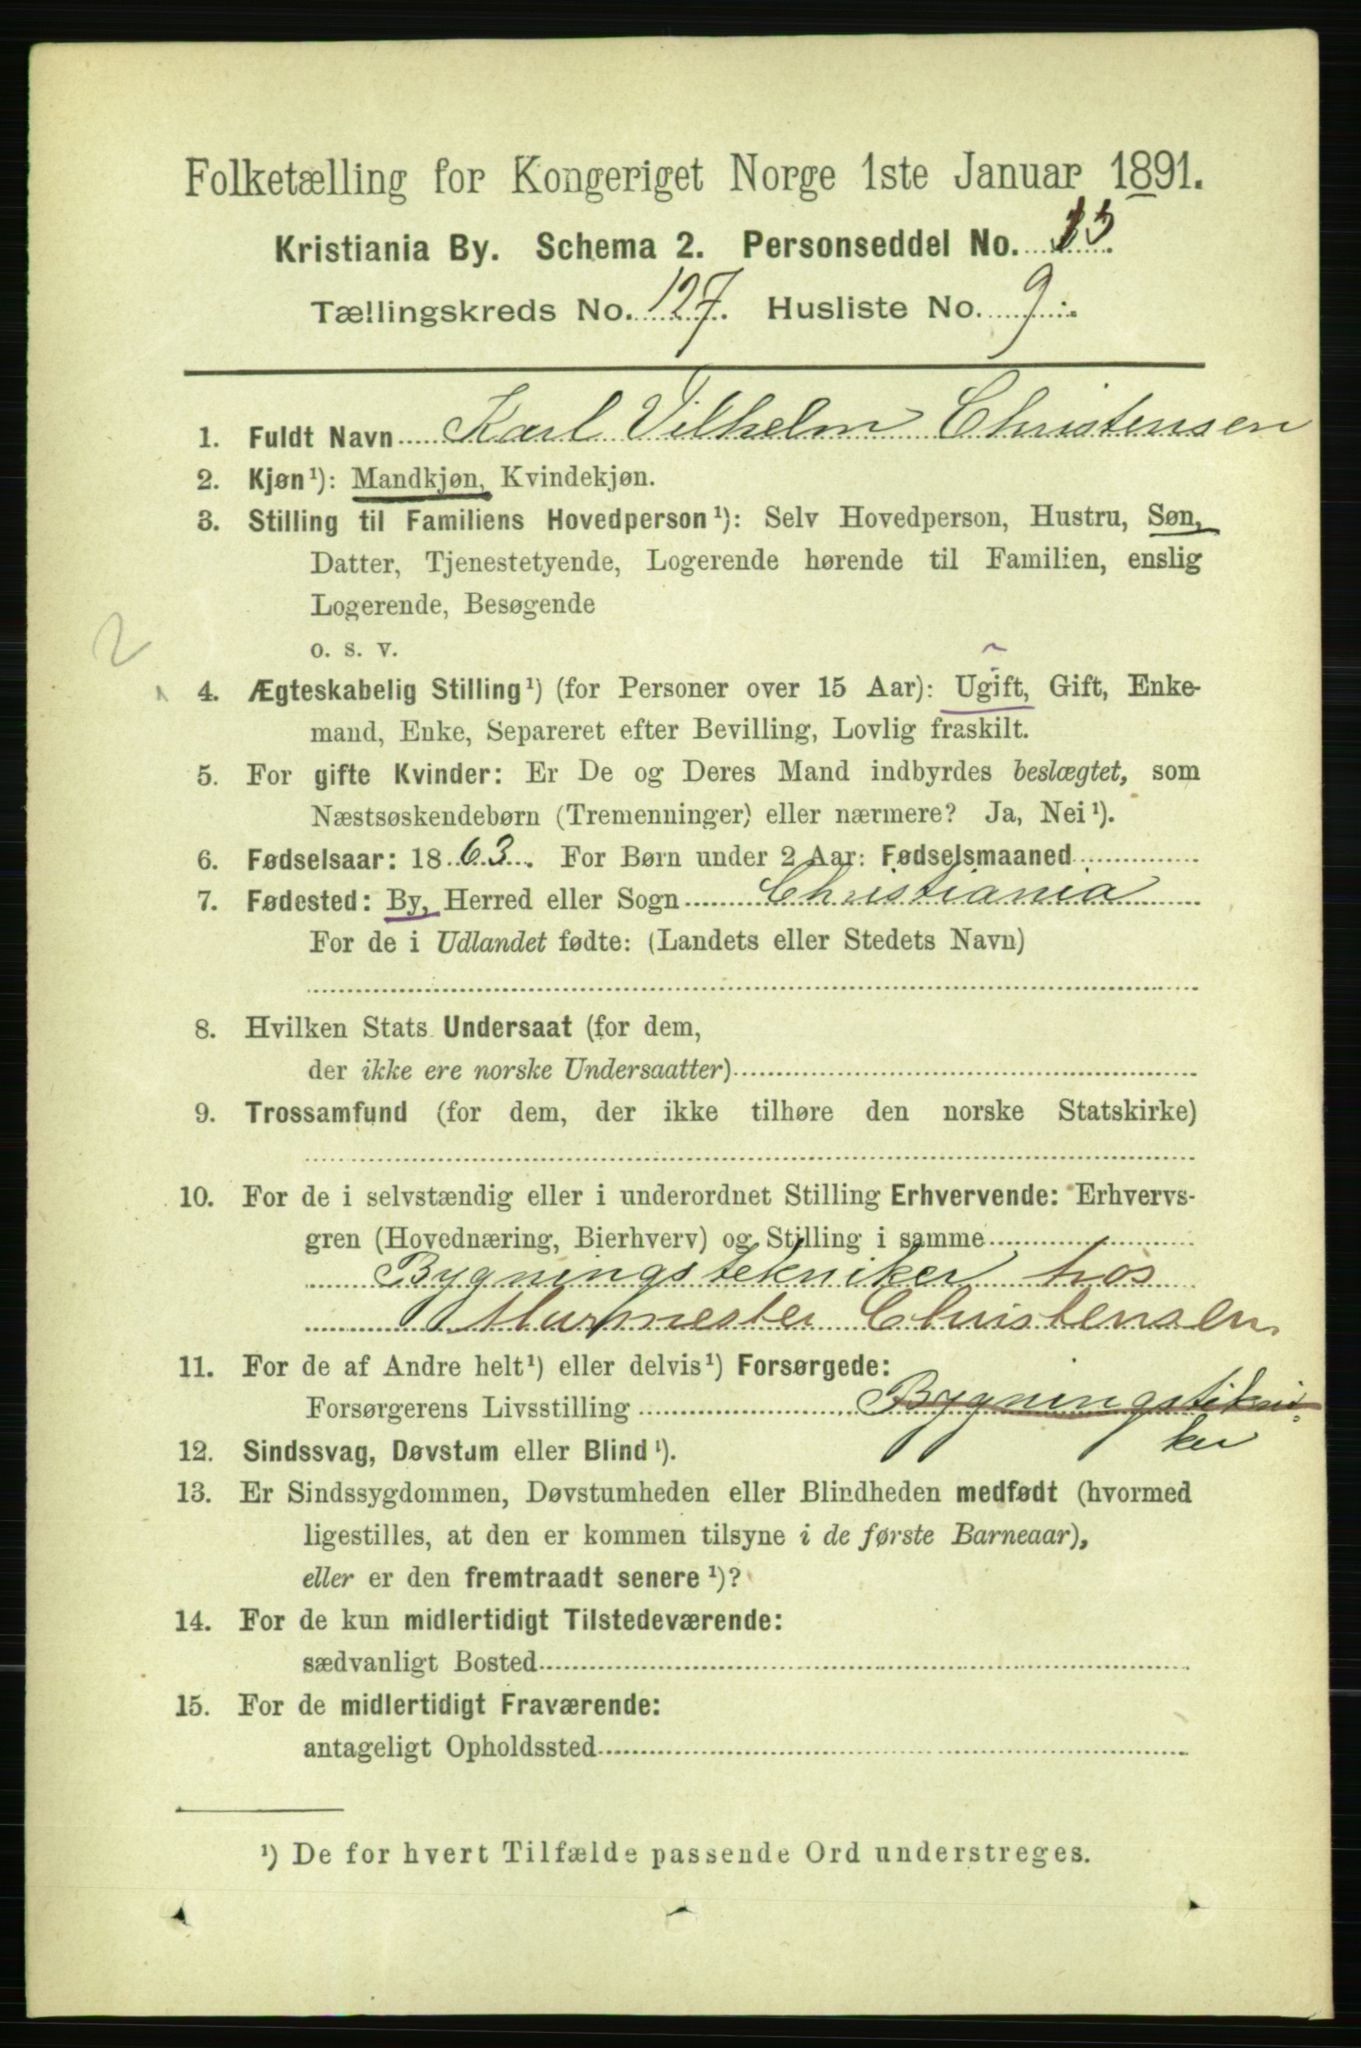 Folketælling for Kongeriget Norge 1ste Januar 1891.
Kristiania By. Schema 2. Personseddel No. 13
Tællingskreds No. 127. Husliste No. 9.
1. Fuldt Navn Karl Vilhelm Christensen
2. Kjøn¹): Mandkjøn, Kvindekjøn.
3. Stilling til Familiens Hovedperson¹): Selv Hovedperson, Hustru, Søn,
Datter, Tjenestetyende, Logerende hørende til Familien, enslig
Logerende, Besøgende
o. s. v.
2
4. Ægteskabelig Stilling¹) (for Personer over 15 Aar): Ugift, Gift, Enke-
mand, Enke, Separeret efter Bevilling, Lovlig fraskilt.
5. For gifte Kvinder: Er De og Deres Mand indbyrdes beslægtet, som
Næstsøskendebørn (Tremenninger) eller nærmere? Ja, Nei¹).
6. Fødselsaar: 1863. For Børn under 2 Aar: Fødselsmaaned
7. Fødested: By, Herred eller Sogn Christiania
For de i Udlandet fødte: (Landets eller Stedets Navn)
8. Hvilken Stats Undersaat (for dem,
der ikke ere norske Undersaatter)
9. Trossamfund (for dem, der ikke tilhøre den norske Statskirke)
10. For de i selvstændig eller i underordnet Stilling Erhvervende: Erhvervs-
gren (Hovednæring, Bierhverv) og Stilling i samme
Bygningstekniker hos
Murmester Christensen
11. For de af Andre helt¹) eller delvis¹) Forsørgede:
Forsørgerens Livsstilling Bygningstekni-
ker
12. Sindssvag, Døvstum eller Blind¹).
13. Er Sindssygdommen, Døvstumheden eller Blindheden medfødt (hvormed
ligestilles, at den er kommen tilsyne i de første Barneaar),
eller er den fremtraadt senere¹)?
14. For de kun midlertidigt Tilstedeværende:
sædvanligt Bosted
15. For de midlertidigt Fraværende:
antageligt Opholdssted
¹) De for hvert Tilfælde passende Ord understreges.